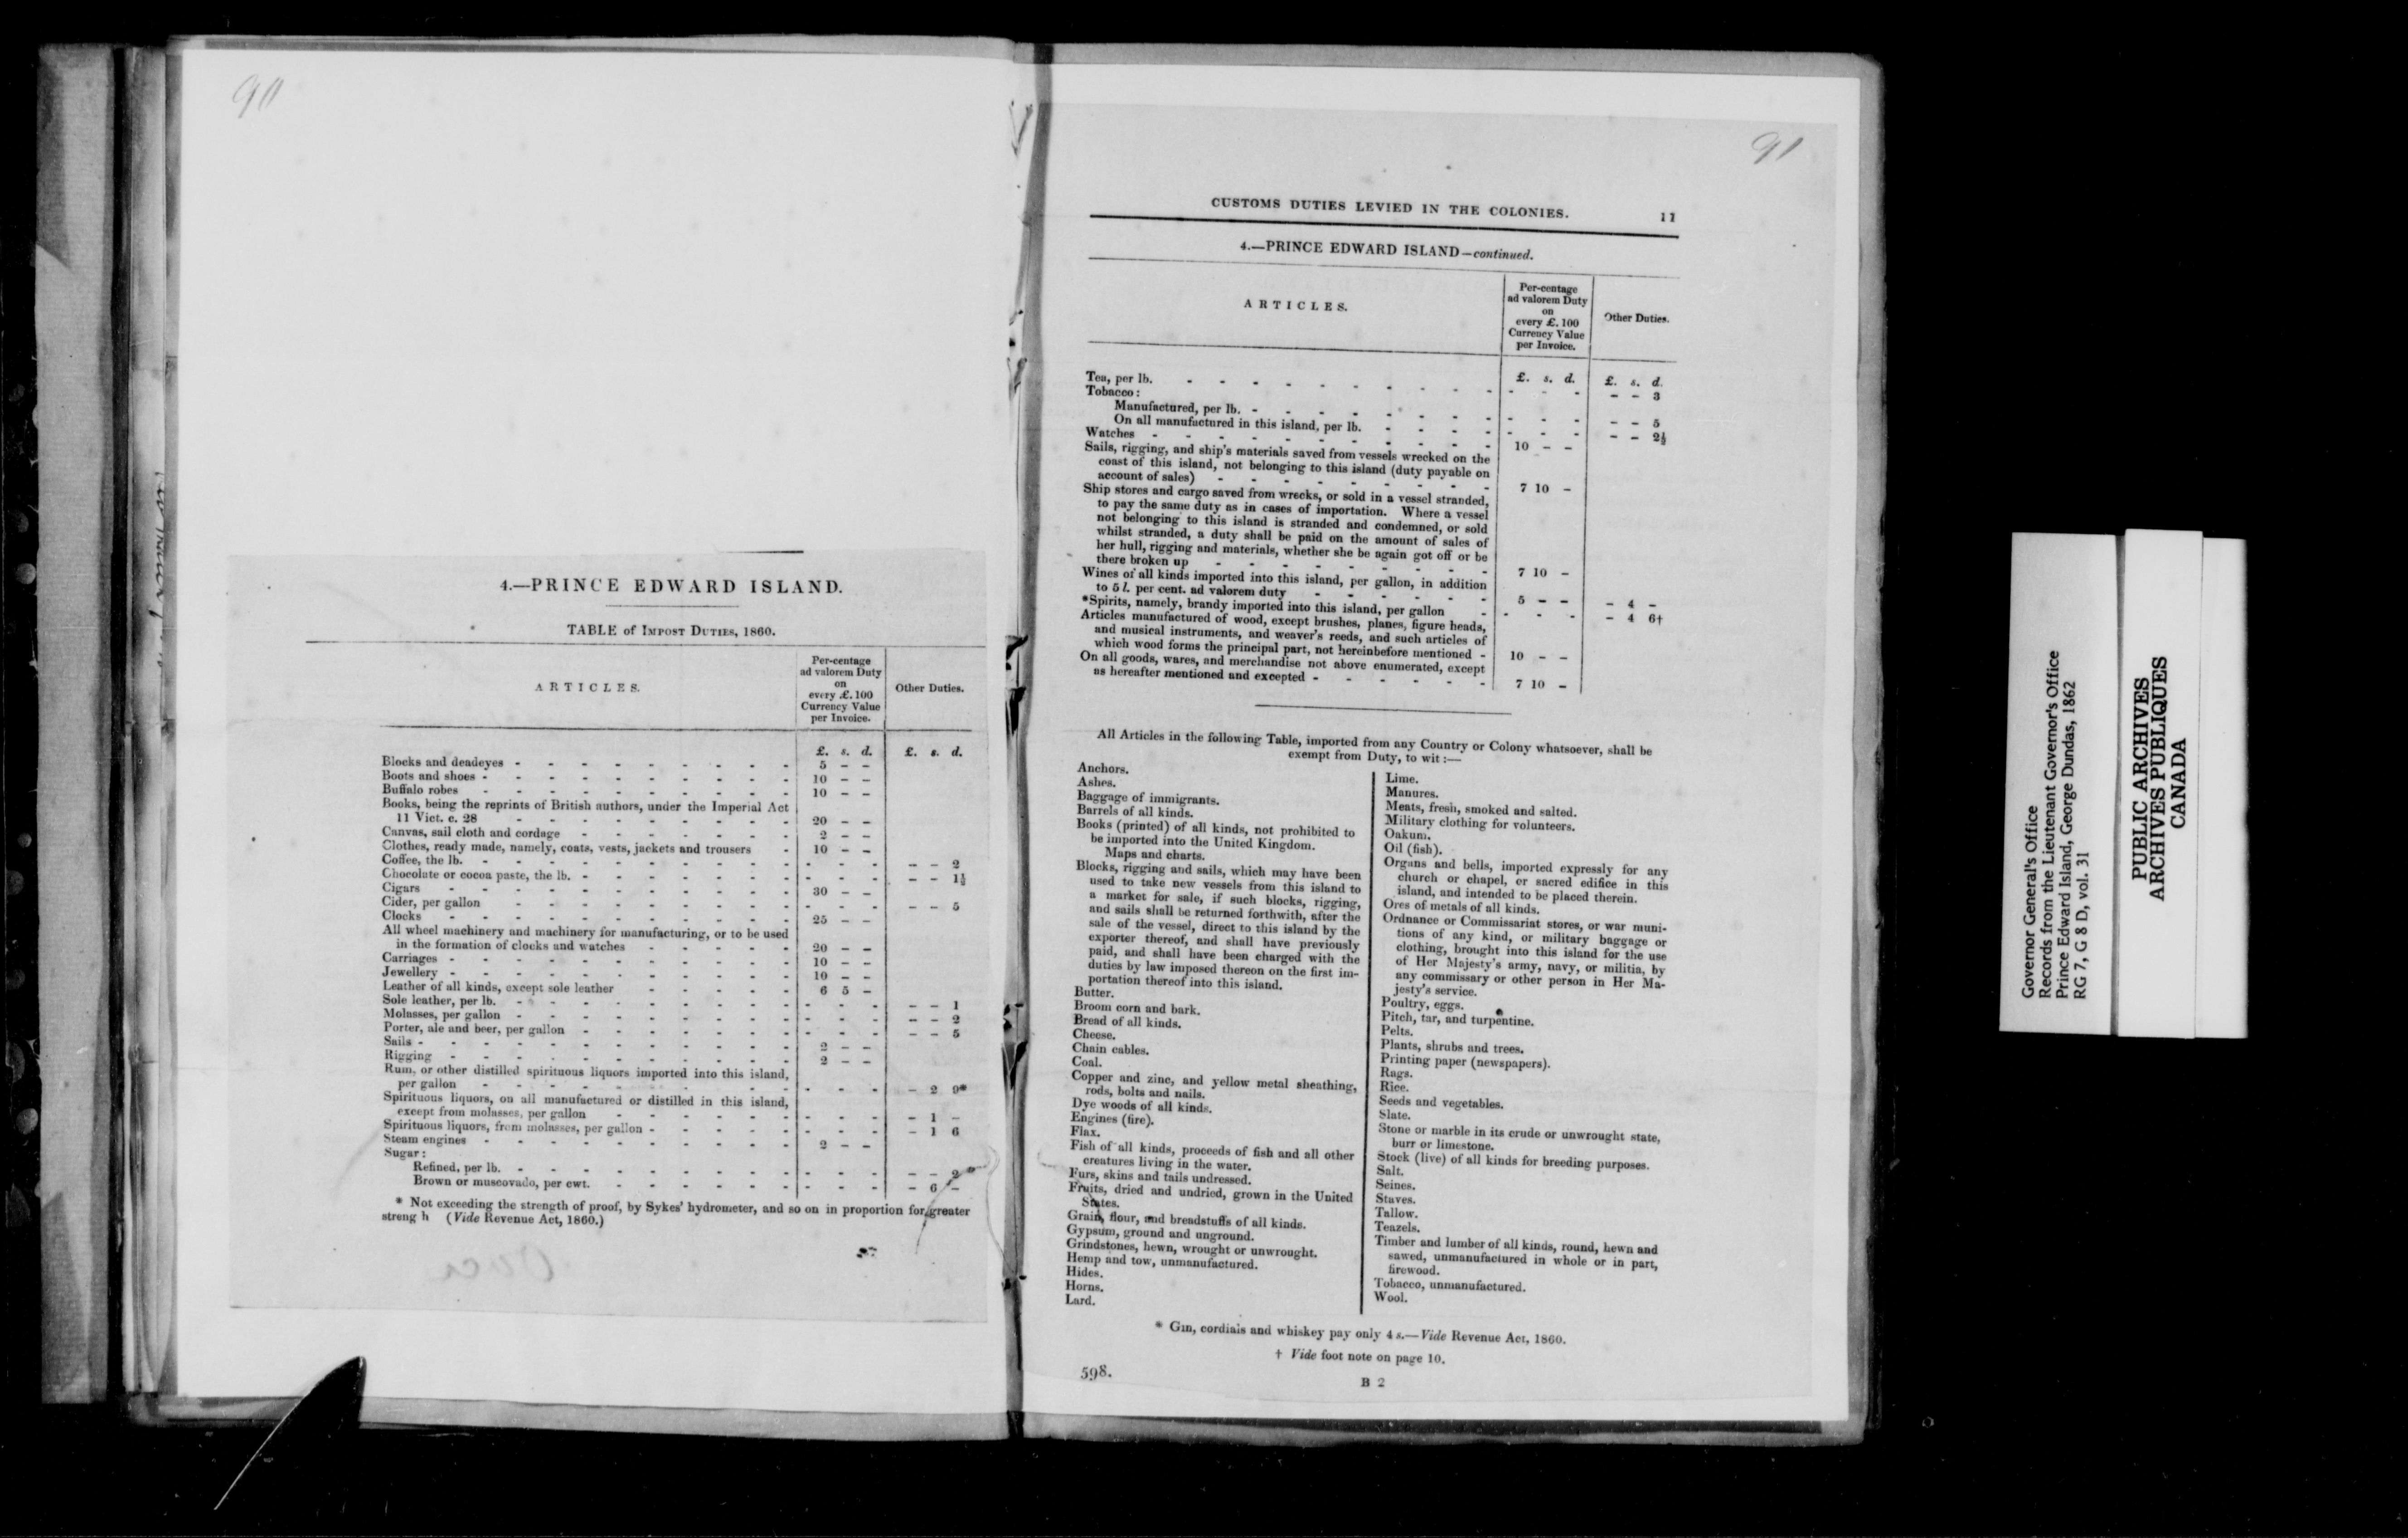 90
4.—PRINCE EDWARD ISLAND.
TABLE of IMPOST DUTIES, 1860.
ARTICLES.
Per-centage
ad valorem Duty
on
every £.100
Currency Value
per Invoice.
Other Duties.
£. s. d. £. s. d.
Blocks and deadeyes - - - - - - - - - 5 – –
Boots and shoes - - - - - - - - - - 10 – –
Buffalo robes - - - - - - - - - - 10 – –
Books, being the reprints of British authors, under the Imperial Act
11 Vict. c. 28 - - - - - - - - - 20 – –
Canvas, sail cloth and cordage - - - - - - - 2 – –
Clothes, ready made, namely, coats, vests, jackets and trousers - 10 – –
Coffee, the lb. - - - - - - - - - - - - - – – 2
Chocolate or cocoa paste, the lb. - - - - - - - - - - – – 1½
Cigars - - - - - - - - - - - 30 – –
Cider, per gallon - - - - - - - - - - - - – – 5
Clocks - - - - - - - - - - - 25 – –
All wheel machinery and machinery for manufacturing, or to be used
in the formation of clocks and watches - - - - - 20 – –
Carriages - - - - - - - - - - - 10 – –
Jewellery - - - - - - - - - - - 10 – –
Leather of all kinds, except sole leather - - - - - 6 5 –
Sole leather, per lb. - - - - - - - - - - - - – – 1
Molasses, per gallon - - - - - - - - - - - - - – – 2
Porter, ale and beer, per gallon - - - - - - - - - - – – 5
Sails - - - - - - - - - - - - 2 – –
Rigging - - - - - - - - - - - 2 – –
Rum, or other distilled spirituous liquors imported into this island,
per gallon - - - - - - - - - - - - - – 2 9*
Spirituous liquors, on all manufactured or distilled in this island,
except from molasses, per gallon - - - - - - - - - – 1 –
Spirituous liquors, from molasses, per gallon - - - - - - - - – 1 6
Steam engines - - - - - - - - - - 2 – –
Sugar :
Refined, per lb. - - - - - - - - - - - - – – 2
Brown or muscovado, per cwt. - - - - - - - - - – 6 –
* Not exceeding the strength of proof, by Sykes' hydrometer, and so on in proportion for greater
streng h (Vide Revenue Act, 1860.)
91
CUSTOMS DUTIES LEVIED IN THE COLONIES. 11
4.—PRINCE EDWARD ISLAND—continued.
ARTICLES.
Per-centage
ad valorem Duty
on
every £.100
Currency Value
per Invoice.
Other Duties.
£. s. d. £. s. d.
Tea, per lb. - - - - - - - - - - - - - – – 3
Tobacco :
Manufactured, per lb. - - - - - - - - - - - – – 5
On all manufactured in this island, per lb. - - - - - - - – – 2½
Watches - - - - - - - - - - - 10 – –
Sails, rigging, and ship's materials saved from vessels wrecked on the
coast of this island, not belonging to this island (duty payable on
account of sales) - - - - - - - - - 7 10 –
Ship stores and cargo saved from wrecks, or sold in a vessel stranded,
to pay the same duty as in cases of importation. Where a vessel
not belonging to this island is stranded and condemned, or sold
whilst stranded, a duty shall be paid on the amount of sales of
her hull, rigging and materials, whether she be again got off or be
there broken up - - - - - - - - - 7 10 –
Wines of all kinds imported into this island, per gallon, in addition
to 5 l. per cent. ad valorem duty - - - - - - 5 – – – 4 –
*Spirits, namely, brandy imported into this island, per gallon - - - - – 4 6†
Articles manufactured of wood, except brushes, planes, figure heads,
and musical instruments, and weaver's reeds, and such articles of
which wood forms the principal part, not hereinbefore mentioned - 10 – –
On all goods, wares, and merchandise not above enumerated, except
as hereafter mentioned and excepted - - - - - - 7 10 –
All Articles in the following Table, imported from any Country or Colony whatsoever, shall be
exempt from Duty, to wit :—
Anchors.
Ashes.
Baggage of immigrants.
Barrels of all kinds.
Books (printed) of all kinds, not prohibited to
be imported into the United Kingdom.
Maps and charts.
Blocks, rigging and sails, which may have been
used to take new vessels from this island to
a market for sale, if such blocks, rigging,
and sails shall be returned forthwith, after the
sale of the vessel, direct to this island by the
exporter thereof, and shall have previously
paid, and shall have been charged with the
duties by law imposed thereon on the first im-
portation thereof into this island.
Butter.
Broom corn and bark.
Bread of all kinds.
Cheese.
Chain cables.
Coal.
Copper and zinc, and yellow metal sheathing,
rods, bolts and nails.
Dye woods of all kinds.
Engines (fire).
Flax.
Fish of all kinds, proceeds of fish and all other
creatures living in the water.
Furs, skins and tails undressed.
Fruits, dried and undried, grown in the United
States.
Grain, flour, and breadstuffs of all kinds.
Gypsum, ground and unground.
Grindstones, hewn, wrought or unwrought.
Hemp and tow, unmanufactured.
Hides.
Horns.
Lard.
Lime.
Manures.
Meats, fresh, smoked and salted.
Military clothing for volunteers.
Oakum.
Oil (fish).
Organs and bells, imported expressly for any
church or chapel, or sacred edifice in this
island, and intended to be placed therein.
Ores of metals of all kinds.
Ordnance or Commissariat stores, or war muni-
tions of any kind, or military baggage or
clothing, brought into this island for the use
of Her Majesty's army, navy, or militia, by
any commissary or other person in Her Ma-
jesty's service.
Poultry, eggs.
Pitch, tar, and turpentine.
Pelts.
Plants, shrubs and trees.
Printing paper (newspapers).
Rags.
Rice.
Seeds and vegetables.
Slate.
Stone or marble in its crude or unwrought state,
burr or limestone.
Stock (live) of all kinds for breeding purposes.
Salt.
Seines.
Staves.
Tallow.
Teazels.
Timber and lumber of all kinds, round, hewn and
sawed, unmanufactured in whole or in part,
firewood.
Tobacco, unmanufactured.
Wool.
* Gin, cordials and whiskey pay only 4 s.—Vide Revenue Act, 1860.
† Vide foot note on page 10.
598.
B 2
Governor General's Office
Records from the Lieutenant Governor's Office
Prince Edward Island, George Dundas, 1862
RG 7, G 8 D, vol. 31
PUBLIC ARCHIVES
ARCHIVES PUBLIQUES
CANADA